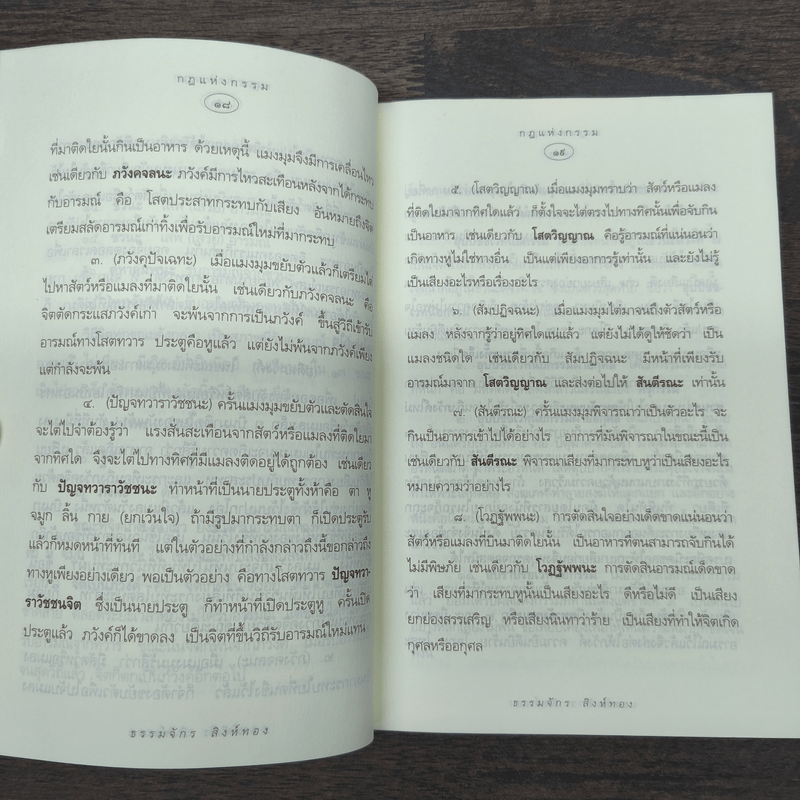 กฎแห่งกรรม
๑๘
ที่มาติดใยนั้นกินเป็นอาหาร ด้วยเหตุนี้ แมงมุมจึงมีการเคลื่อนไหว
เช่นเดียวกับ ภวังคจลนะ ภวังค์มีการไหวสะเทือนหลังจากได้กระทบ
กับอารมณ์ คือ โสตประสาทกระทบกับเสียง อันหมายถึงจิต
เตรียมสลัดอารมณ์เก่าทิ้งเพื่อรับอารมณ์ใหม่ที่มากระทบ
๓. (ภวังคุปัจเฉทะ) เมื่อแมงมุมขยับตัวแล้วก็เตรียมไต่
ไปหาสัตว์หรือแมลงที่มาติดใยนั้น เช่นเดียวกับภวังคจลนะ คือ
จิตตัดกระแสภวังค์เก่า จะพ้นจากการเป็นภวังค์ ขึ้นสู่วิถีเข้ารับ
อารมณ์ทางโสตทวาร ประตูคือหูแล้ว แต่ยังไม่พ้นจากภวังค์เพียง
แต่กำลังจะพ้น
๔. (ปัญจทวาราวัชชนะ) ครั้นแมงมุมขยับตัวและตัดสินใจ
จะไต่ไปจำต้องรู้ว่า แรงสั่นสะเทือนจากสัตว์หรือแมลงที่ติดใยมา
จากทิศใด จึงจะไต่ไปทางทิศที่มีแมลงติดอยู่ได้ถูกต้อง เช่นเดียว
กับ ปัญจทวาราวัชชนะ ทำหน้าที่เป็นนายประตูทั้งห้าคือ ตา หู
จมูก ลิ้น กาย (ยกเว้นใจ) ถ้ามีรูปมากระทบตา ก็เปิดประตูรับ
แล้วก็หมดหน้าที่ทันที แต่ในตัวอย่างที่กำลังกล่าวถึงนี้ขอกล่าวถึง
ทางหูเพียงอย่างเดียว พอเป็นตัวอย่าง คือทางโสตทวาร ปัญจทวา-
ราวัชชนจิต ซึ่งเป็นนายประตู ก็ทำหน้าที่เปิดประตูหู ครั้นเปิด
ประตูแล้ว ภวังค์ก็ได้ขาดลง เป็นจิตที่ขึ้นวิถีรับอารมณ์ใหม่แทน
ธรรมจักร สิงห์ทอง
กฎแห่งกรรม
๑๙
๕. (โสตวิญญาณ) เมื่อแมงมุมทราบว่า สัตว์หรือแมลง
ที่ติดใยมาจากทิศใดแล้ว ก็ตั้งใจจะไต่ตรงไปทางทิศนั้นเพื่อจับกิน
เป็นอาหาร เช่นเดียวกับ โสตวิญญาณ คือรู้อารมณ์ที่แน่นอนว่า
เกิดทางหูไม่ใช่ทางอื่น เป็นแต่เพียงอาการรู้เท่านั้น และยังไม่รู้
เป็นเสียงอะไรหรือเรื่องอะไร
๖. (สัมปฏิจฉนะ) เมื่อแมงมุมไต่มาจนถึงตัวสัตว์หรือ
แมลง หลังจากรู้ว่าอยู่ทิศใดแน่แล้ว แต่ยังไม่ได้ดูให้ชัดว่า เป็น
แมลงชนิดใด เช่นเดียวกับ สัมปฏิจฉนะ มีหน้าที่เพียงรับ
อารมณ์มาจาก โสตวิญญาณ และส่งต่อไปให้ สันตีรณะ เท่านั้น
๗. (สันตีรณะ) ครั้นแมงมุมพิจารณาว่าเป็นตัวอะไร จะ
กินเป็นอาหารเข้าไปได้อย่างไร อาการที่มันพิจารณาในขณะนี้เป็น
เช่นเดียวกับ สันตีรณะ พิจารณาเสียงที่มากระทบหูว่าเป็นเสียงอะไร
หมายความว่าอย่างไร
๘. (โวฏฐัพพนะ) การตัดสินใจอย่างเด็ดขาดแน่นอนว่า
สัตว์หรือแมลงที่บินมาติดใยนั้น เป็นอาหารที่ตนสามารถจับกินได้
ไม่มีพิษภัย เช่นเดียวกับ โวฏฐัพพนะ การตัดสินอารมณ์เด็ดขาด
ว่า เสียงที่มากระทบหูนั้นเป็นเสียงอะไร ดีหรือไม่ดี เป็นเสียง
ยกย่องสรรเสริญ หรือเสียงนินทาว่าร้าย เป็นเสียงที่ทำให้จิตเกิด
กุศลหรืออกุศล
ธรรมจักร สิงห์ทอง